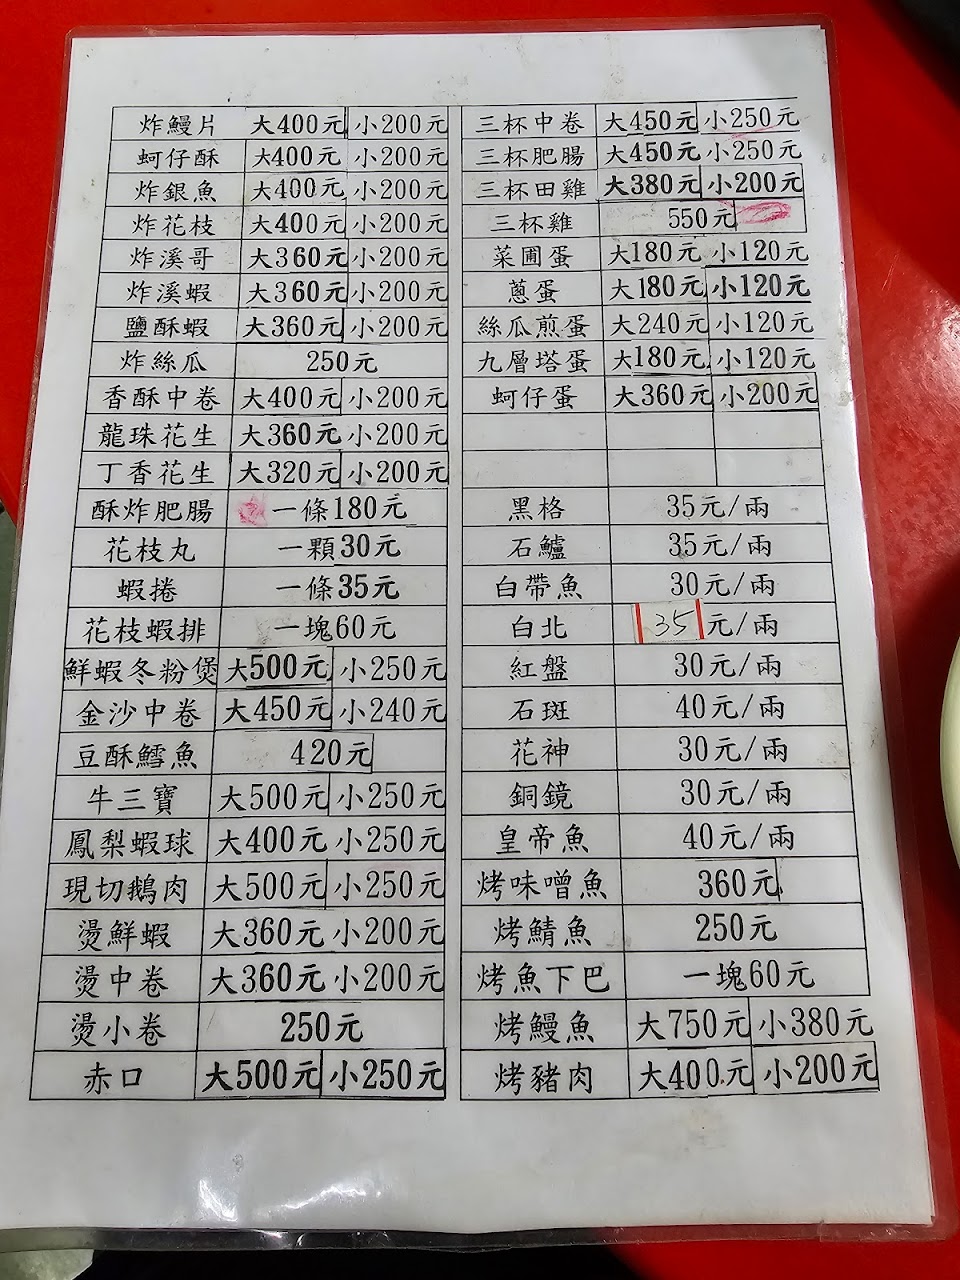 炸鰻片 大400元 小200元
蚵仔酥 大400元 小200元
炸銀魚 大400元 小200元
炸花枝 大400元 小200元
炸溪哥 大360元 小200元
炸溪蝦 大360元 小200元
鹽酥蝦 大360元 小200元
炸絲瓜 250元
香酥中卷 大400元 小200元
龍珠花生 大360元 小200元
丁香花生 大320元 小200元
酥炸肥腸 一條180元
花枝丸 一顆30元
蝦捲 一條35元
花枝蝦排 一塊60元
鮮蝦冬粉煲 大500元 小250元
金沙中卷 大450元 小240元
豆酥鱈魚 420元
牛三寶 大500元 小250元
鳳梨蝦球 大400元 小250元
現切鵝肉 大500元 小250元
燙鮮蝦 大360元 小200元
燙中卷 大360元 小200元
燙小卷 250元
赤口 大500元 小250元
三杯中卷 大450元 小250元
三杯肥腸 大450元 小250元
三杯田雞 大380元 小200元
三杯雞 550元
菜圃蛋 大180元 小120元
蔥蛋 大180元 小120元
絲瓜煎蛋 大240元 小120元
九層塔蛋 大180元 小120元
蚵仔蛋 大360元 小200元
黑格 35元/兩
石鱸 35元/兩
白帶魚 30元/兩
白北 35元/兩
紅盤 30元/兩
石斑 40元/兩
花神 30元/兩
銅鏡 30元/兩
皇帝魚 40元/兩
烤味噌魚 360元
烤鯖魚 250元
烤魚下巴 一塊60元
烤鰻魚 大750元 小380元
烤豬肉 大400元 小200元